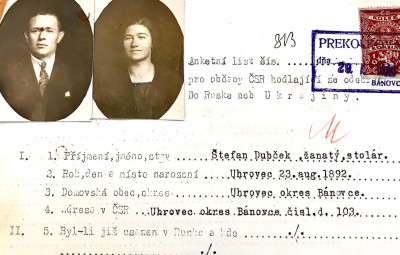 813
PREKO
28
BÁNOVC
KOLEK
Anketní list čís. dňa
pro občany ČSR hodlající se odeb
Do Ruska neb Ukrajiny.
I. 1. Příjmení,jméno,stav Štefan Dubček ženatý,stolár.
2. Rok,den a místo narození Uhrovec 23.aug.1892.
3. Domovská obec,okres Uhrovec okres Bánovce.
4. Adresa v ČSR Uhrovec okres Bánovce čisl.d. 103.
II. 5. Byl-li již usazen v Rusku a kde ./.
./.